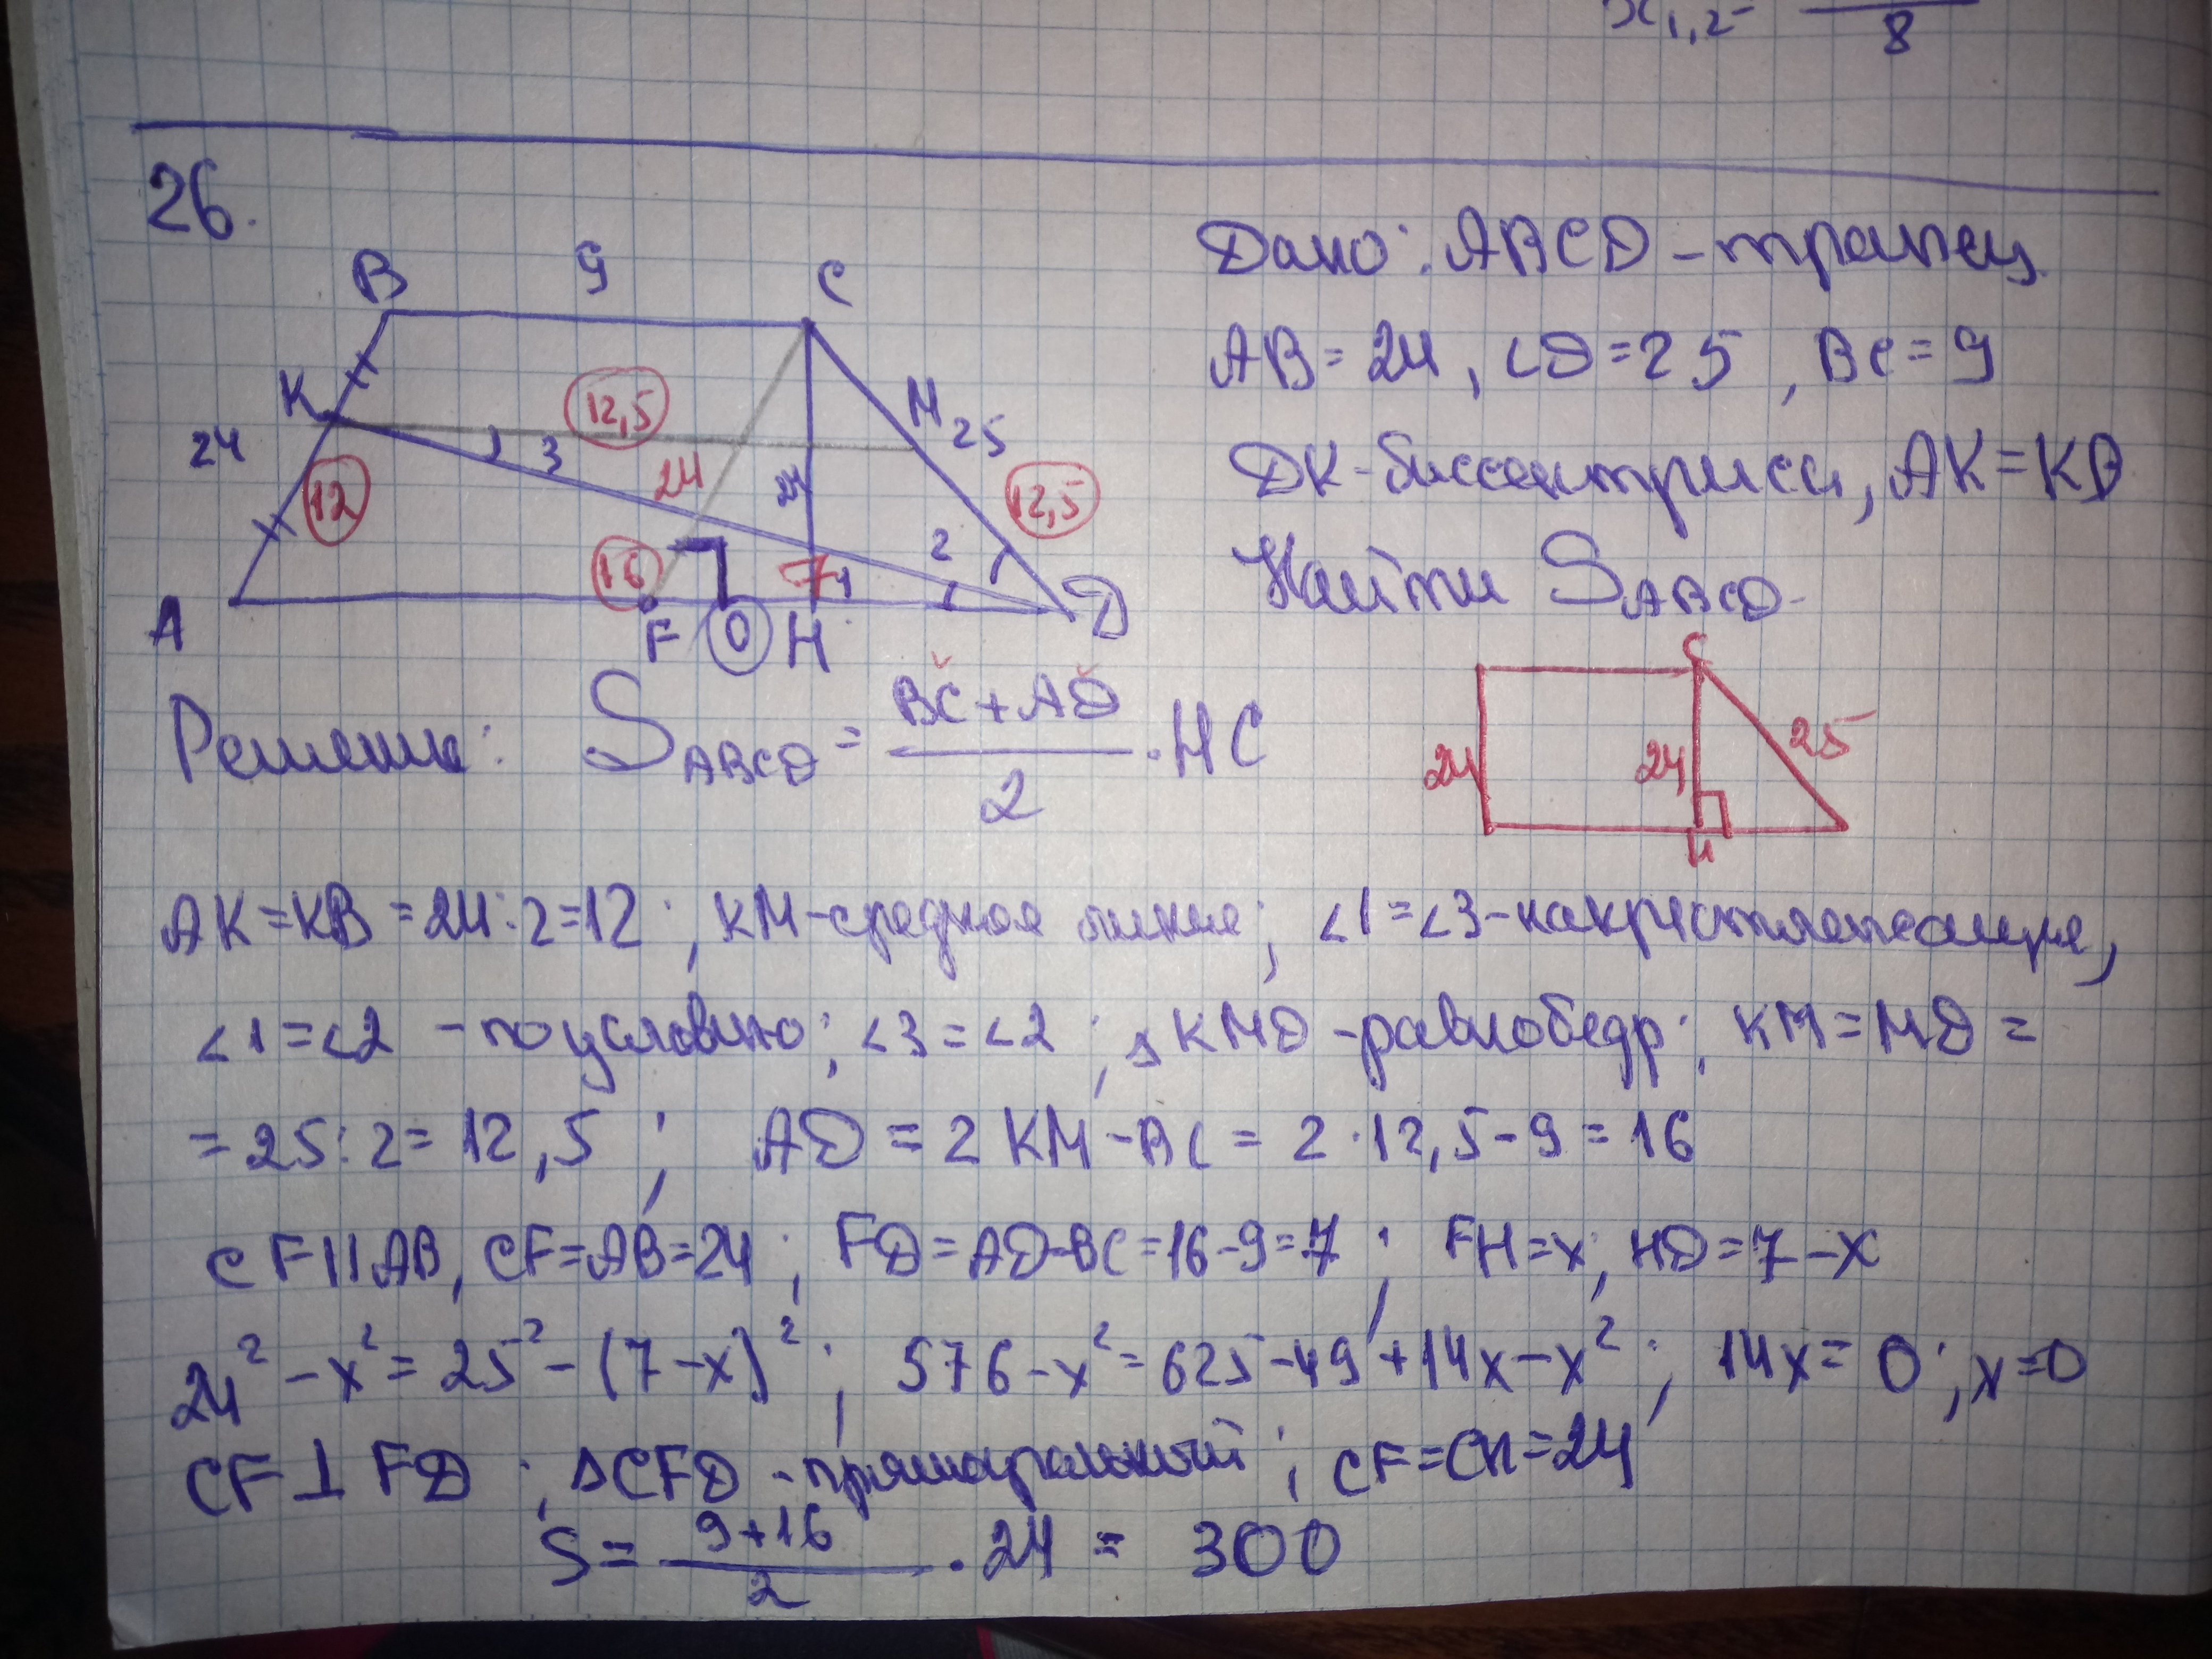 x₁,₂= 8
26.
B 9 C
K 12,5 M 25
24 12 3 24 24 2 12,5
16 7 1
A F O H D
Дано: ABCD - трапец.
AB = 24, CD = 25, BC = 9
DK - биссектриса, AK = KB
Найти S_ABCD.
C
24 24 25
H
Решение: S_ABCD = (BC + AD)/2 · HC
AK = KB = 24 : 2 = 12 ; KM - средняя линия ; ∠1 = ∠3 - накрестлежащие,
∠1 = ∠2 - по условию ; ∠3 = ∠2 ; Δ KMD - равнобедр ; KM = MD =
= 25 : 2 = 12,5 ; AD = 2 KM - BC = 2 · 12,5 - 9 = 16
CF || AB, CF = AB = 24 ; FD = AD - BC = 16 - 9 = 7 ; FH = x ; HD = 7 - x
24² - x² = 25² - (7 - x)² ; 576 - x² = 625 - 49 + 14x - x² ; 14x = 0 ; x = 0
CF ⊥ FD ; Δ CFD - прямоугольный ; CF = CH = 24
S = (9 + 16)/2 · 24 = 300